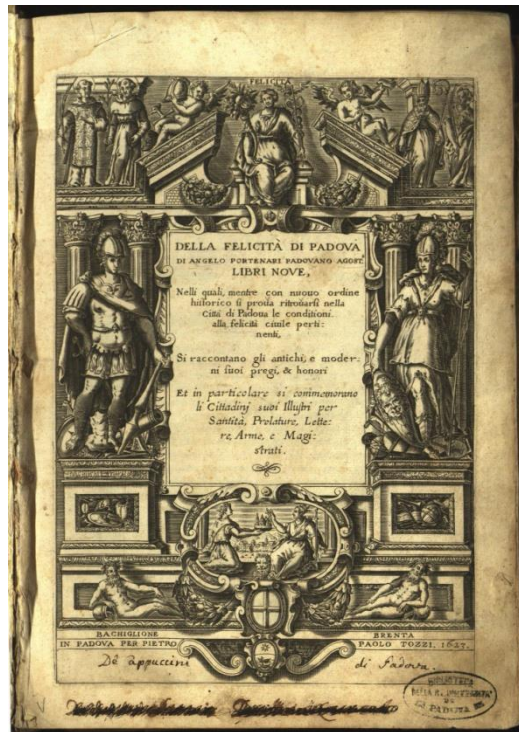 FELICITÀ
DELLA FELICITÀ DI PADOVA
DI ANGELO PORTENARI PADOVANO AGOST.
LIBRI NOVE,
Nelli quali, mentre con nuouo ordine
historico si proua ritrouarsi nella
Città di Padoua le conditioni
alla felicità ciuile perti:
nenti,
Si raccontano gli antichi, e moder:
ni suoi pregi, & honori
Et in particolare si commemorano
li Cittadinj suoi Illustri per
Santità, Prelature, Lette:
re, Arme, e Magi:
strati.
BACHIGLIONE BRENTA
IN PADOVA PER PIETRO PAOLO TOZZI, 1627.
De Cappuccini di Padova.
BIBLIOTECA
DELLA R. UNIVERSITA'
DI
PADOVA